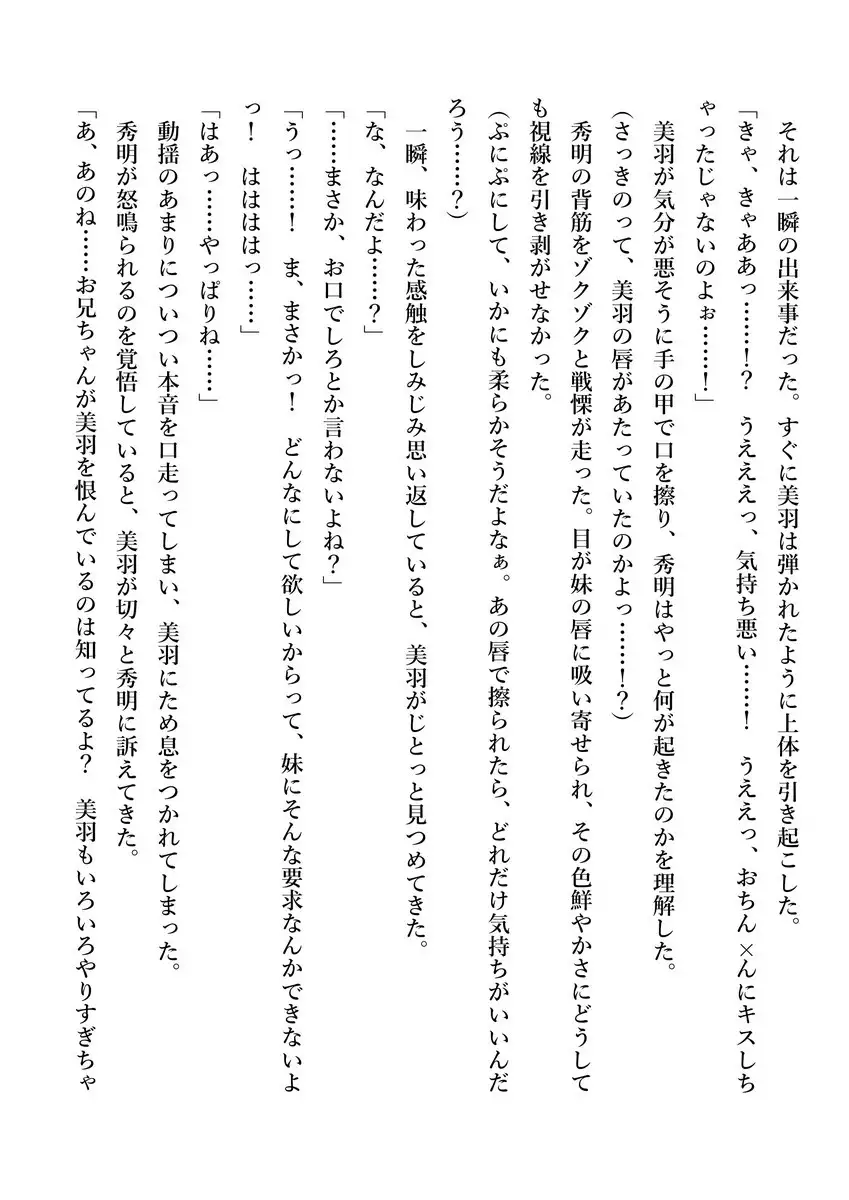 それは一瞬の出来事だった。すぐに美羽は弾かれたように上体を引き起こした。
「きゃ、きゃああっ……!?　うえええっ、気持ち悪い……！　うええっ、おちん×んにキスしち
ゃったじゃないのよぉ……！」
美羽が気分が悪そうに手の甲で口を擦り、秀明はやっと何が起きたのかを理解した。
(さっきのって、美羽の唇があたっていたのかよっ……!?)
秀明の背筋をゾクゾクと戦慄が走った。目が妹の唇に吸い寄せられ、その色鮮やかさにどうして
も視線を引き剥がせなかった。
(ぷにぷにして、いかにも柔らかそうだよなぁ。あの唇で擦られたら、どれだけ気持ちがいいんだ
ろう……？)
一瞬、味わった感触をしみじみ思い返していると、美羽がじとっと見つめてきた。
「な、なんだよ……？」
「……まさか、お口でしろとか言わないよね？」
「うっ……！　ま、まさかっ！　どんなにして欲しいからって、妹にそんな要求なんかできないよ
っ！　はははは っ……」
「はあっ……やっぱりね……」
動揺のあまりについつい本音を口走ってしまい、美羽にため息をつかれてしまった。
秀明が怒鳴られるのを覚悟していると、美羽が切々と秀明に訴えてきた。
「あ、あのね……お兄ちゃんが美羽を恨んでいるのは知ってるよ？　美羽もいろいろやりすぎちゃ